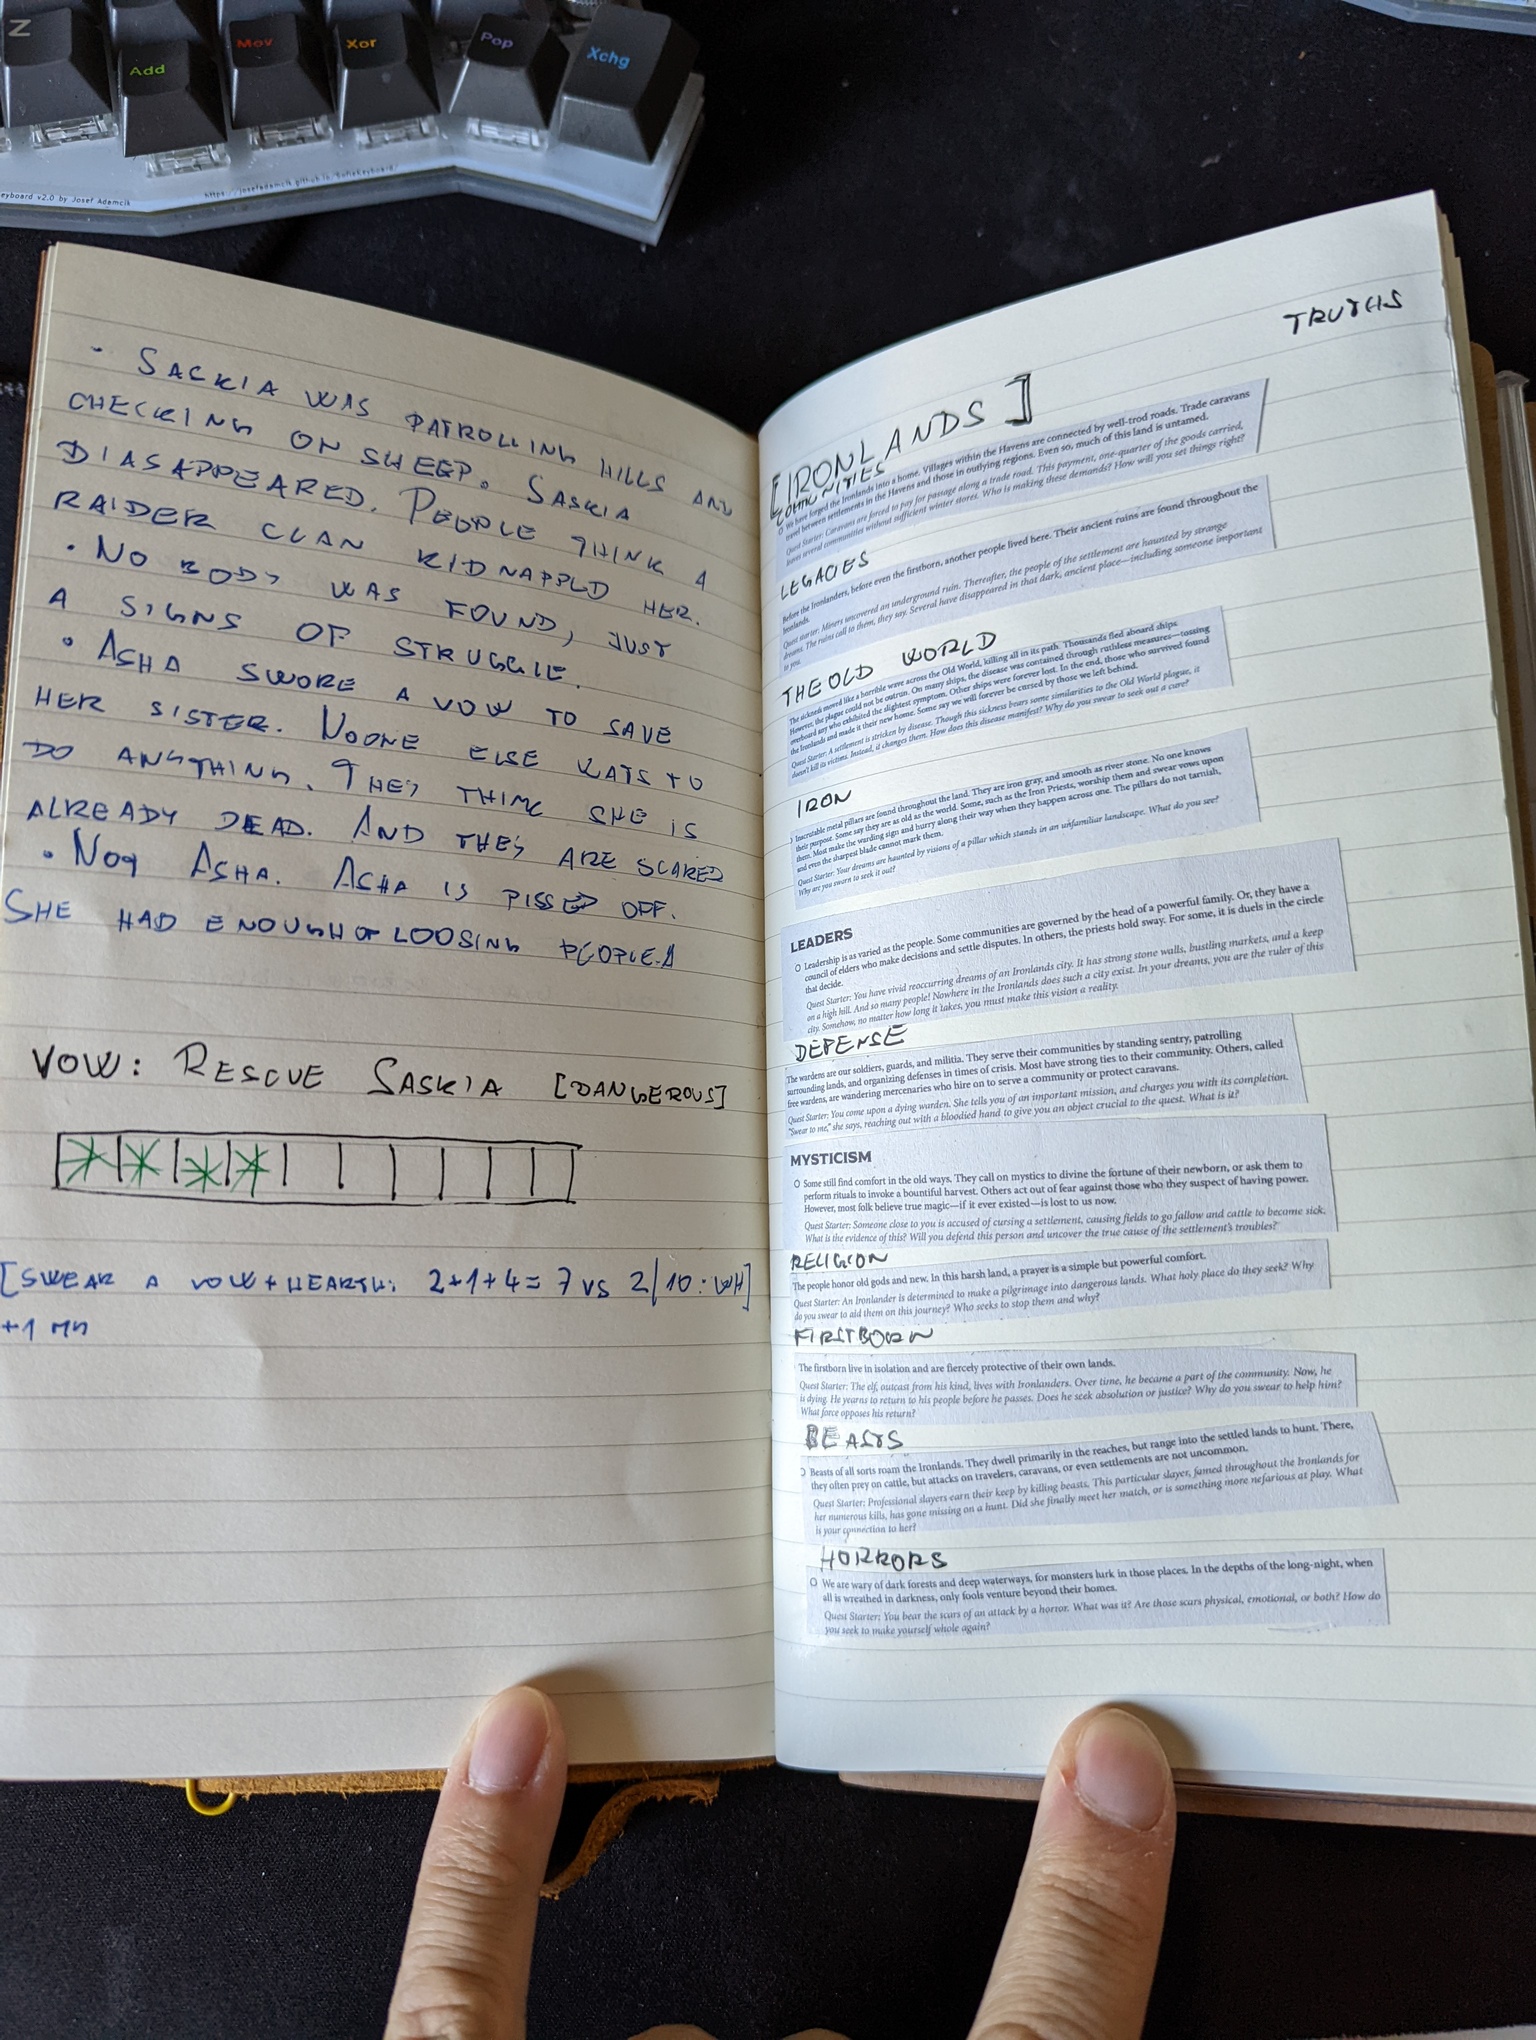 Z
Add
Mov
Xor
Pop
Xchg
eyboard v2.0 by Josef Adamcik
https://josefadamcik.github.io/SofleKeyboard/
• SACKIA WAS PATROLLING HILLS AND
CHECKING ON SHEEP. SASKIA
DIASAPPEARED. PEOPLE THINK A
RAIDER CLAN KIDNAPPED HER.
• NO BODY WAS FOUND, JUST
A SIGNS OF STRUGGLE.
• ASHA SWORE A VOW TO SAVE
HER SISTER. NOONE ELSE WATS TO
DO ANYTHING. THEY THINK SHE IS
ALREADY DEAD. AND THEY ARE SCARED
• NOQ ASHA. ASHA IS PISSED OFF.
SHE HAD ENOUGH OF LOOSING PEOPLE.
VOW: RESCUE SASKIA [DANGEROUS]
[SWEAR A VOW+HEARTH: 2+1+4=7 VS 2/10: WH]
+1 MN
TRUTHS
[IRONLANDS]
COMMUNITIES
We have forged the Ironlands into a home. Villages within the Havens are connected by well-trod roads. Trade caravans
travel between settlements in the Havens and those in outlying regions. Even so, much of this land is untamed.
Quest Starter: Caravans are forced to pay for passage along a trade road. This payment, one-quarter of the goods carried,
leaves several communities without sufficient winter stores. Who is making these demands? How will you set things right?
LEGACIES
Before the Ironlanders, before even the firstborn, another people lived here. Their ancient ruins are found throughout the
Ironlands.
Quest starter: Miners uncovered an underground ruin. Thereafter, the people of the settlement are haunted by strange
dreams. The ruins call to them, they say. Several have disappeared in that dark, ancient place—including someone important
to you.
THE OLD WORLD
The sickness moved like a horrible wave across the Old World, killing all in its path. Thousands fled aboard ships.
However, the plague could not be outrun. On many ships, the disease was contained through ruthless measures—tossing
overboard any who exhibited the slightest symptom. Other ships were forever lost. In the end, those who survived found
the Ironlands and made it their new home. Some say we will forever be cursed by those we left behind.
Quest Starter: A settlement is stricken by disease. Though this sickness bears some similarities to the Old World plague, it
doesn't kill its victims. Instead, it changes them. How does this disease manifest? Why do you swear to seek out a cure?
IRON
Inscrutable metal pillars are found throughout the land. They are iron gray, and smooth as river stone. No one knows
their purpose. Some say they are as old as the world. Some, such as the Iron Priests, worship them and swear vows upon
them. Most make the warding sign and hurry along their way when they happen across one. The pillars do not tarnish,
and even the sharpest blade cannot mark them.
Quest Starter: Your dreams are haunted by visions of a pillar which stands in an unfamiliar landscape. What do you see?
Why are you sworn to seek it out?
LEADERS
O Leadership is as varied as the people. Some communities are governed by the head of a powerful family. Or, they have a
council of elders who make decisions and settle disputes. In others, the priests hold sway. For some, it is duels in the circle
that decide.
Quest Starter: You have vivid reoccurring dreams of an Ironlands city. It has strong stone walls, bustling markets, and a keep
on a high hill. And so many people! Nowhere in the Ironlands does such a city exist. In your dreams, you are the ruler of this
city. Somehow, no matter how long it takes, you must make this vision a reality.
DEFENSE
The wardens are our soldiers, guards, and militia. They serve their communities by standing sentry, patrolling
surrounding lands, and organizing defenses in times of crisis. Most have strong ties to their community. Others, called
free wardens, are wandering mercenaries who hire on to serve a community or protect caravans.
Quest Starter: You come upon a dying warden. She tells you of an important mission, and charges you with its completion.
"Swear to me," she says, reaching out with a bloodied hand to give you an object crucial to the quest. What is it?
MYSTICISM
O Some still find comfort in the old ways. They call on mystics to divine the fortune of their newborn, or ask them to
perform rituals to invoke a bountiful harvest. Others act out of fear against those who they suspect of having power.
However, most folk believe true magic—if it ever existed—is lost to us now.
Quest Starter: Someone close to you is accused of cursing a settlement, causing fields to go fallow and cattle to become sick.
What is the evidence of this? Will you defend this person and uncover the true cause of the settlement's troubles?
RELIGION
The people honor old gods and new. In this harsh land, a prayer is a simple but powerful comfort.
Quest Starter: An Ironlander is determined to make a pilgrimage into dangerous lands. What holy place do they seek? Why
do you swear to aid them on this journey? Who seeks to stop them and why?
FIRSTBORN
The firstborn live in isolation and are fiercely protective of their own lands.
Quest Starter: The elf, outcast from his kind, lives with Ironlanders. Over time, he became a part of the community. Now, he
is dying. He yearns to return to his people before he passes. Does he seek absolution or justice? Why do you swear to help him?
What force opposes his return?
BEASTS
O Beasts of all sorts roam the Ironlands. They dwell primarily in the reaches, but range into the settled lands to hunt. There,
they often prey on cattle, but attacks on travelers, caravans, or even settlements are not uncommon.
Quest Starter: Professional slayers earn their keep by killing beasts. This particular slayer, famed throughout the Ironlands for
her numerous kills, has gone missing on a hunt. Did she finally meet her match, or is something more nefarious at play. What
is your connection to her?
HORRORS
O We are wary of dark forests and deep waterways, for monsters lurk in those places. In the depths of the long-night, when
all is wreathed in darkness, only fools venture beyond their homes.
Quest Starter: You bear the scars of an attack by a horror. What was it? Are those scars physical, emotional, or both? How do
you seek to make yourself whole again?